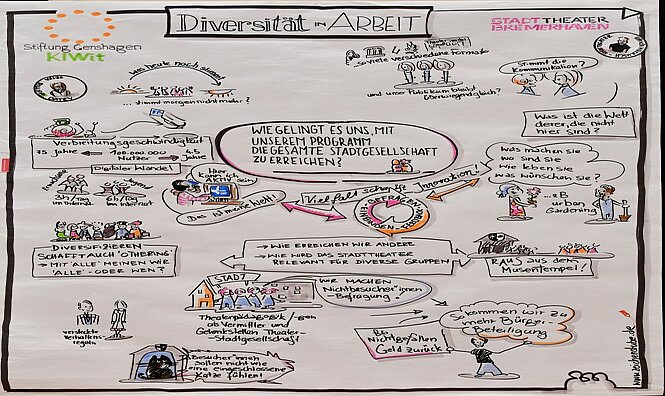 Diversität in ARBEIT
Stiftung Genshagen
KIWit
STADTTHEATER
BREMERHAVEN
was heute noch stimmt
... stimmt morgen nicht mehr?
... so viele verschiedene Formate
und unser Publikum bleibt
überwiegend gleich?
Stimmt die
Kommunikation?
Verbreitungsgeschwindigkeit
75 Jahre
100.000.000
Nutzer
4,5
Jahre
Digitaler Wandel
WIE GELINGT ES UNS, MIT
UNSEREM PROGRAMM
DIE GESAMTE STADTGESELLSCHAFT
ZU ERREICHEN?
Was ist die Welt
derer, die nicht
hier sind?
Was machen sie
wo sind sie
wie leben sie
was wünschen sie?
3h/Tag
im Internet
im Internet
Hier
kann ich
AKTIV
sein
Das ist meine Welt!
Vielfalt schafft Innovation!
z.B.
urban
Gardening
DIVERSIFIZIEREN
SCHAFFT AUCH 'OTHERING'
→ MIT 'ALLE' MEINEN WIR
'ALLE' - ODER WEN?
→ WIE ERREICHEN WIR ANDERE
→ WIE WIRD DAS STADTTHEATER
RELEVANT FÜR DIVERSE GRUPPEN
RAUS aus dem
Musentempel!
STADT
WIR MACHEN
Nichtbesucher*innen
-Befragung!
Theaterpädagogik/-gen
als Vermittler und
Gelenkstellen Theater-
Stadtgesellschaft
versteckte
Verhaltens-
regeln
Besucher*innen
sollen nicht wie
eine eingeschlossene
Katze fühlen!
Bei
Nichtgefallen
Geld zurück
So kommen wir zu
mehr Bürger-
Beteiligung